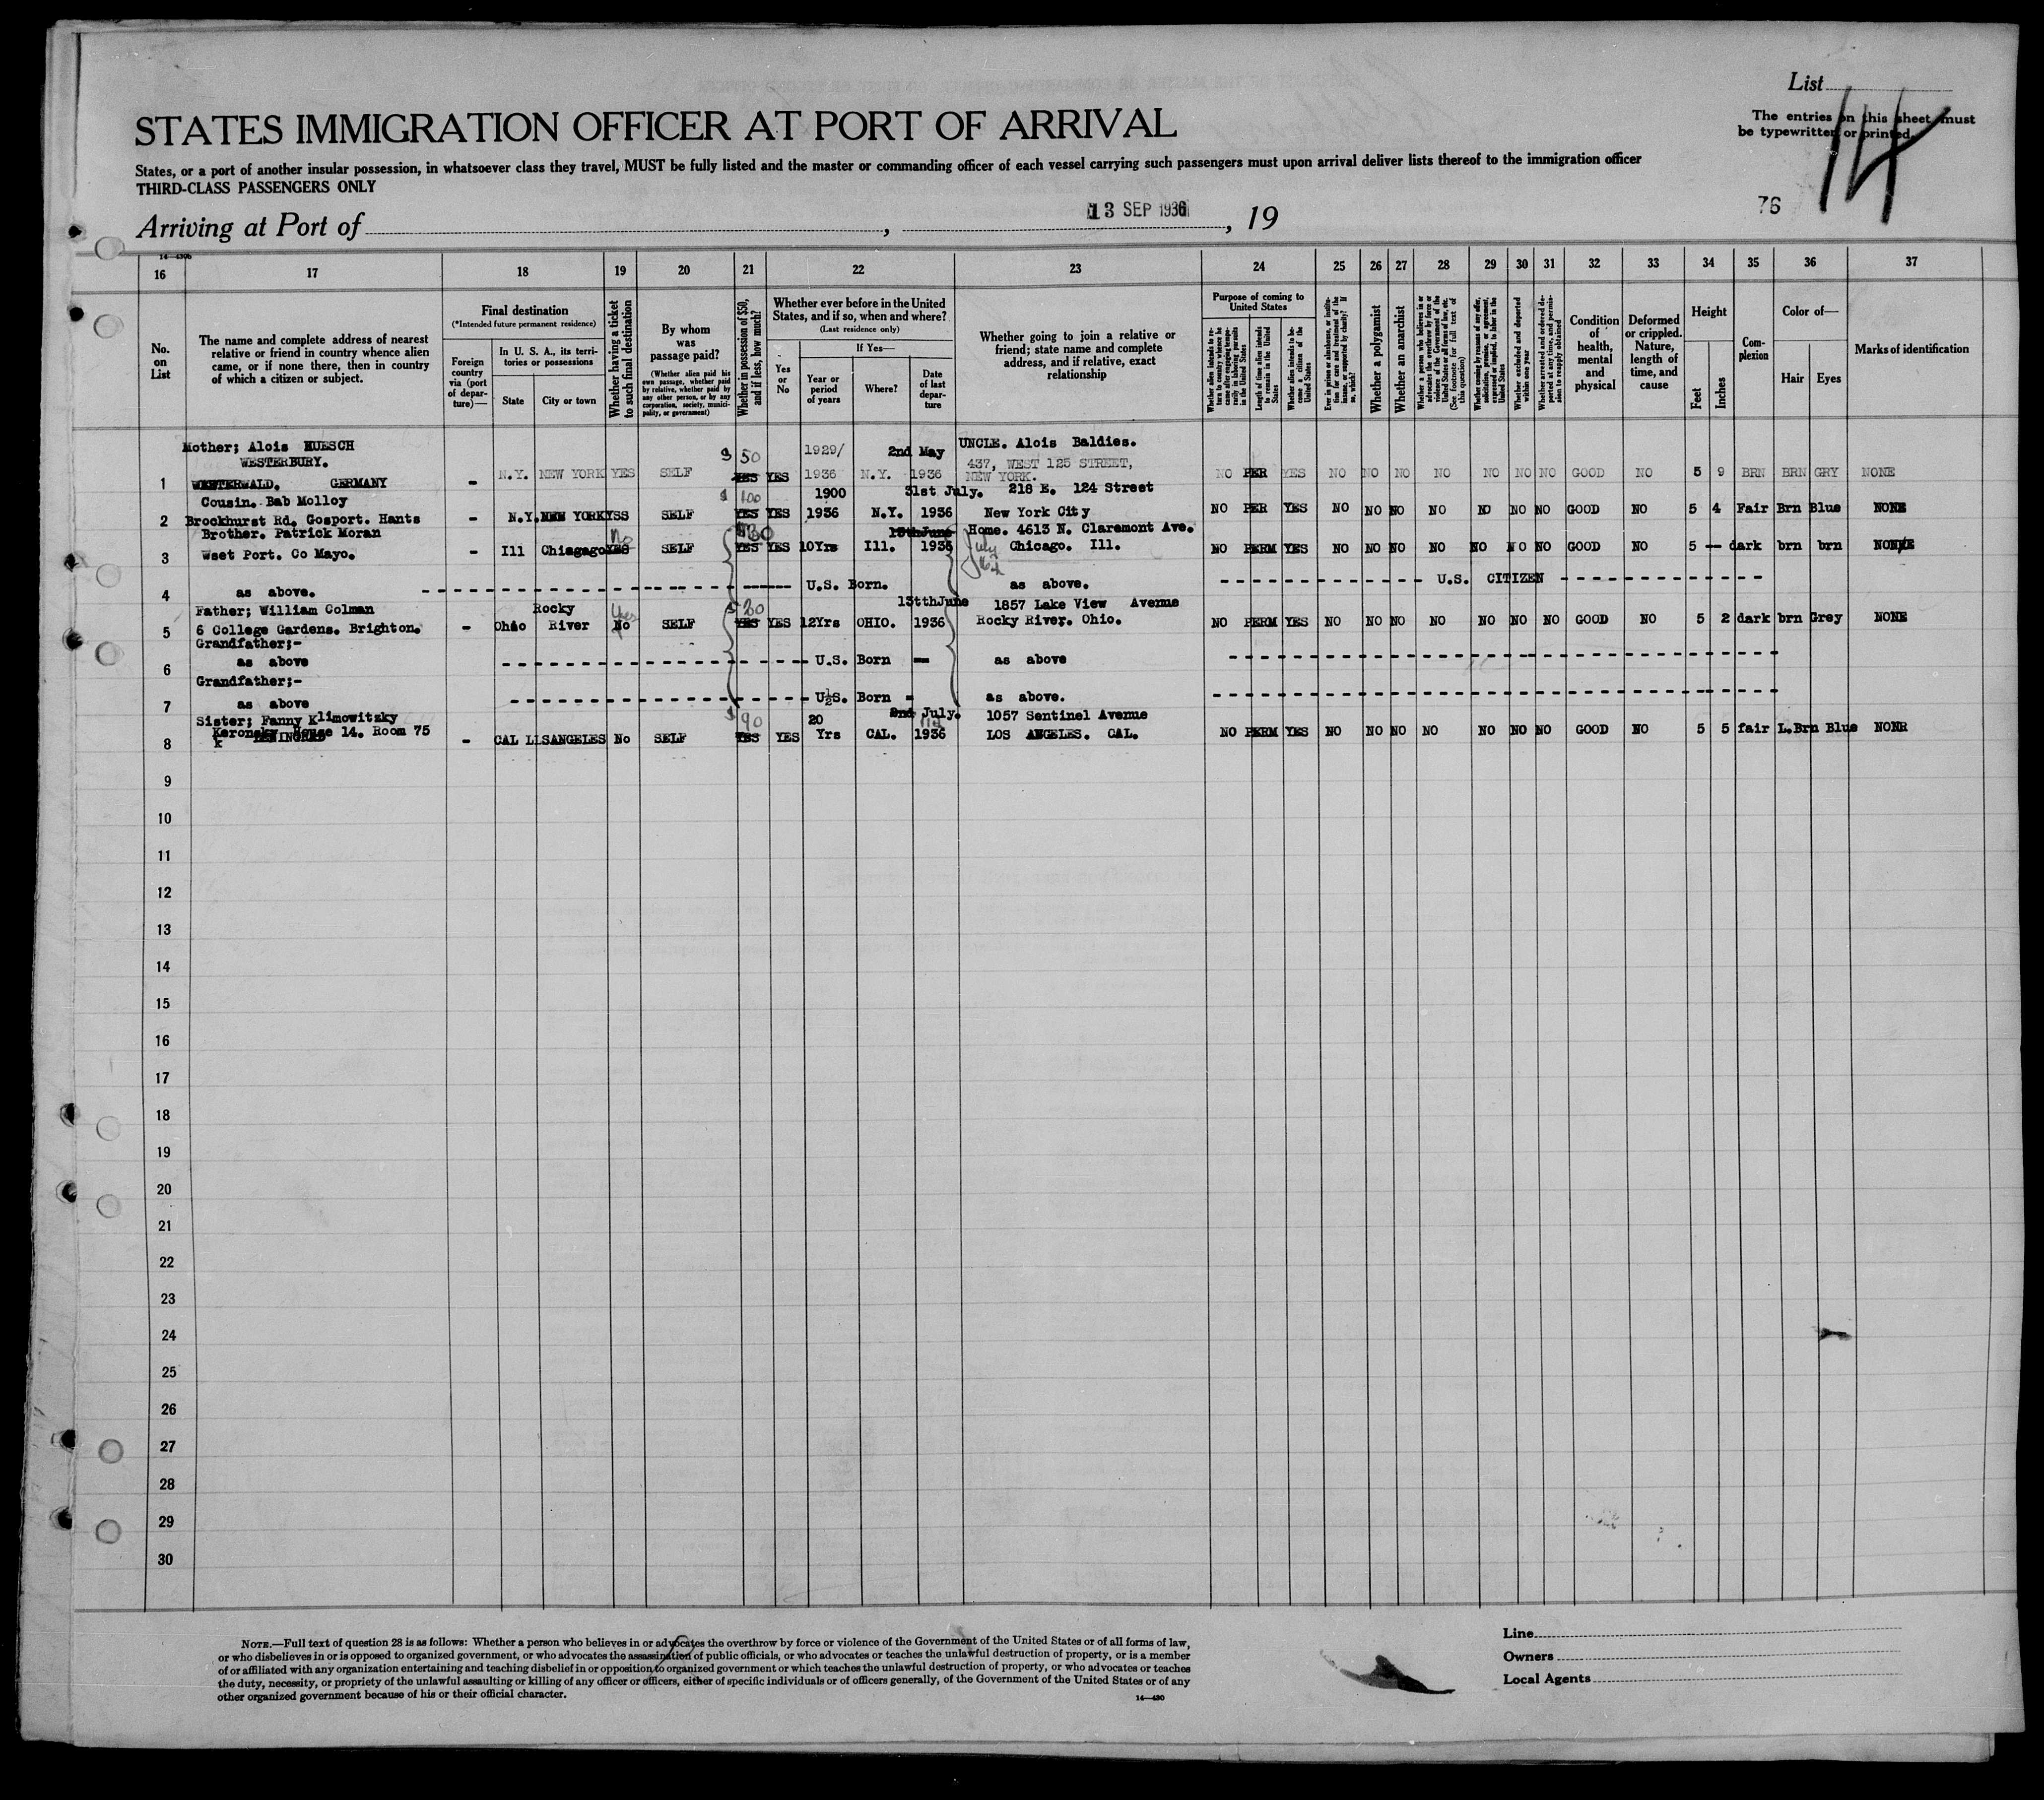 List
14
The entries on this sheet must
be typewritten or printed.
STATES IMMIGRATION OFFICER AT PORT OF ARRIVAL
States, or a port of another insular possession, in whatsoever class they travel, MUST be fully listed and the master or commanding officer of each vessel carrying such passengers must upon arrival deliver lists thereof to the immigration officer
THIRD-CLASS PASSENGERS ONLY
76
Arriving at Port of , 13 SEP 1936 , 19
16 17 18 19 20 21 22 23 24 25 26 27 28 29 30 31 32 33 34 35 36 37
No.
on
List
The name and complete address of nearest
relative or friend in country whence alien
came, or if none there, then in country
of which a citizen or subject.
Final destination
(*Intended future permanent residence)
Foreign
country
via (port
of depar-
ture)—
In U. S. A., its terri-
tories or possessions
State City or town
Whether having a ticket
to such final destination
By whom
was
passage paid?
(Whether alien paid his
own passage, whether paid
by relative, whether paid by
any other person, or by any
corporation, society, munici-
pality, or government)
Whether in possession of $50,
and if less, how much?
Whether ever before in the United
States, and if so, when and where?
(Last residence only)
Yes
or
No
If Yes—
Year or
period
of years
Where?
Date
of last
depar-
ture
Whether going to join a relative or
friend; state name and complete
address, and if relative, exact
relationship
Purpose of coming to
United States
Length of time alien intends
to remain in the United
States
Whether alien intends to be-
come a citizen of the
United States
Whether a polygamist
Whether an anarchist
Whether excluded and deported
within one year
Condition
of
health,
mental
and
physical
Deformed
or crippled.
Nature,
length of
time, and
cause
Height
Feet Inches
Com-
plexion
Color of—
Hair Eyes
Marks of identification
Mother; Alois HUESCH 1929/ 2nd May UNCLE. Alois Baldies.
WESTERBURY. $ 50 437, WEST 125 STREET,
1 WESTERWALD. GERMANY - N.Y. NEW YORK YES SELF YES YES 1936 N.Y. 1936 NEW YORK. NO PER YES NO NO NO NO NO NO NO GOOD NO 5 9 BRN BRN GRY NONE
Cousin. Bab Molloy $ 100 1900 31st July. 218 E. 124 Street
2 Brockhurst Rd. Gosport. Hants - N.Y. NEW YORK YSS SELF YES YES 1936 N.Y. 1936 New York City NO PER YES NO NO NO NO NO NO NO GOOD NO 5 4 Fair Brn Blue NONE
Brother. Patrick Moran No 15thJune Home. 4613 N. Claremont Ave.
3 Wset Port. Co Mayo. - Ill Chiagago YES SELF YES YES 10Yrs Ill. 1936 July Chicago. Ill. NO PERM YES NO NO NO NO NO NO NO GOOD NO 5 — dark brn brn NONE
4 as above. U.S. Born. as above. U.S. CITIZEN
Father; William Colman Rocky Yes 13tthJune 1857 Lake View Avenue
5 6 College Gardens. Brighton. - Ohio River No SELF YES YES 12Yrs OHIO. 1936 Rocky River. Ohio. NO PERM YES NO NO NO NO NO NO NO GOOD NO 5 2 dark brn Grey NONE
Grandfather;-
6 as above U.S. Born as above
Grandfather;-
7 as above U.S. Born - as above.
Sister; Fanny Klimowitzky $ 90 20 2nd July. 1057 Sentinel Avenue
8 House 14. Room 75 - CAL LLSANGELES No SELF YES YES Yrs CAL. 1936 LOS ANGELES. CAL. NO PERM YES NO NO NO NO NO NO NO GOOD NO 5 5 fair L.Brn Blue NONR
9
10
11
12
13
14
15
16
17
18
19
20
21
22
23
24
25
26
27
28
29
30
NOTE.—Full text of question 28 is as follows: Whether a person who believes in or advocates the overthrow by force or violence of the Government of the United States or of all forms of law,
or who disbelieves in or is opposed to organized government, or who advocates the assassination of public officials, or who advocates or teaches the unlawful destruction of property, or is a member
of or affiliated with any organization entertaining and teaching disbelief in or opposition to organized government or which teaches the unlawful destruction of property, or who advocates or teaches
the duty, necessity, or propriety of the unlawful assaulting or killing of any officer or officers, either of specific individuals or of officers generally, of the Government of the United States or of any
other organized government because of his or their official character.
14—430
Line
Owners
Local Agents